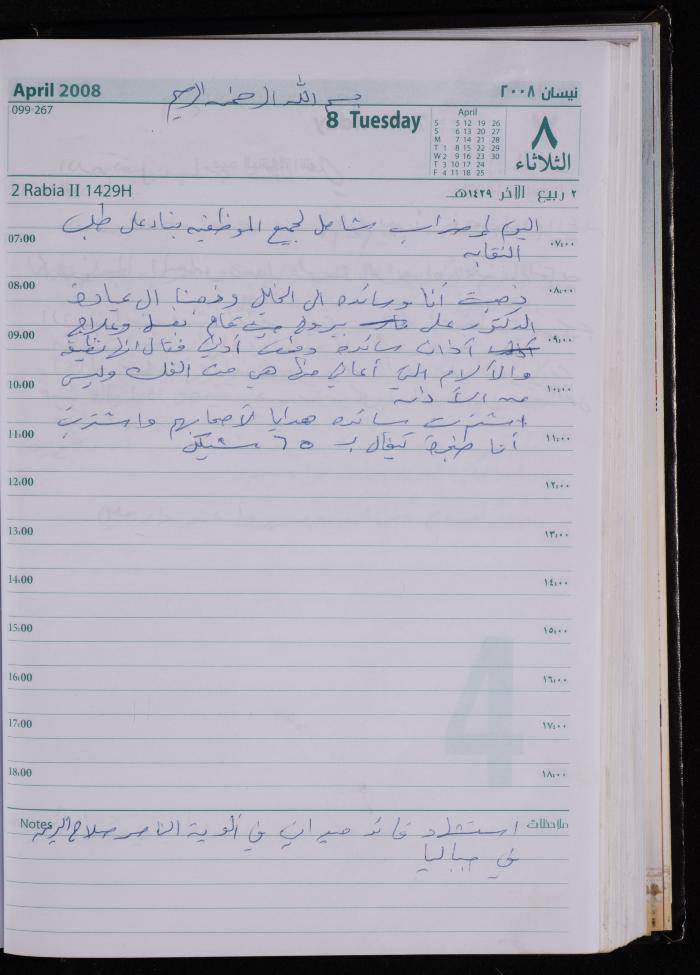 April 2008
نيسان ٢٠٠٨
بسم الله الرحمن الرحيم
099-267
8 Tuesday
April
S 5 12 19 26
S 6 13 20 27
M 7 14 21 28
T 1 8 15 22 29
W 2 9 16 23 30
T 3 10 17 24
F 4 11 18 25
٨
الثلاثاء
2 Rabia II 1429H
٢ ربيع الآخر ١٤٢٩هـ
اليوم إضراب شامل لجميع الموظفين بناء على طلب
07:00 ٠٧:٠٠
النقابه
08:00 ٠٨:٠٠
ذهبت أنا وسائده الى الخليل وذهبنا الى عيادة
الدكتور علي حيث قام بغسل وعلاج
09:00 ٠٩:٠٠
آذان سائده وفحص أذني فقال انها نظيفة
والآلام التي أعاني منها هي من الفك وليس
10:00 ١٠:٠٠
من الأذن
اشترت سائده هدايا لأصحابهم واشتريت
11:00 ١١:٠٠
أنا طنجرة تيفال بـ ٦٥ شيكل
12:00 ١٢:٠٠
13:00 ١٣:٠٠
14:00 ١٤:٠٠
15:00 ١٥:٠٠
16:00 ١٦:٠٠
17:00 ١٧:٠٠
18:00 ١٨:٠٠
4
Notes ملاحظات
استشهاد قائد ميداني في ألوية الناصر صلاح الدين
في جباليا